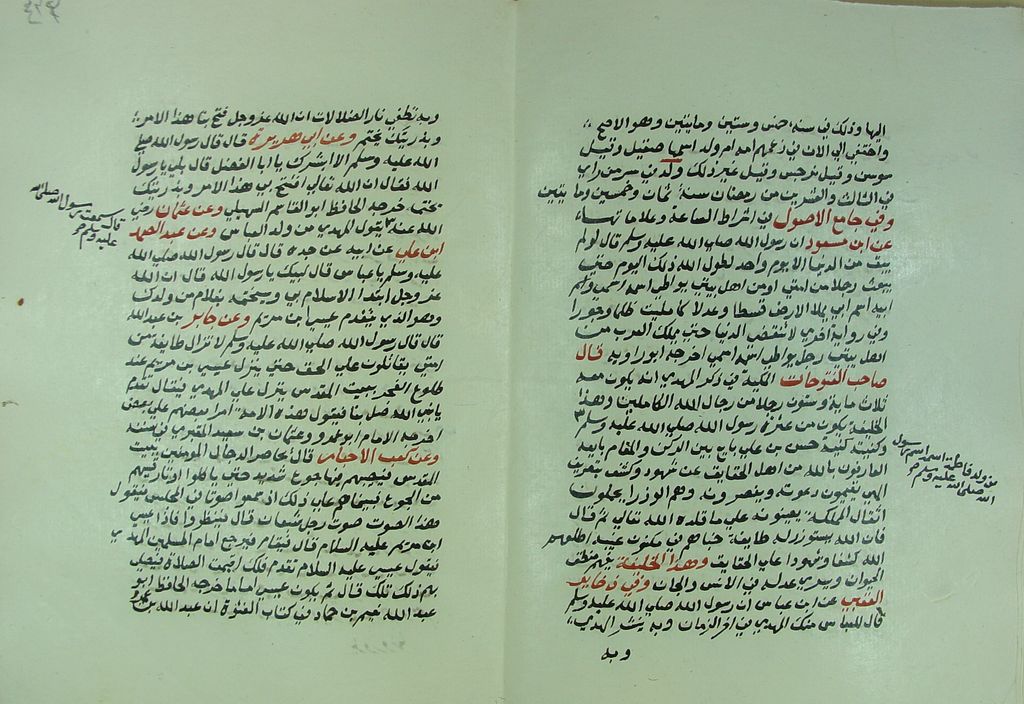 اليها وذلك في سنة خمس وستين ومايتين وهو الاصح
واختفى الى الان في زعمهم امه ام ولد اسمها صقيل وقيل
سوسن وقيل نرجس وقيل غير ذلك ولد في سر من راى
في الثالث والعشرين من رمضان سنة ثمان وخمسين ومايتين
وفي جامع الاصول في اشراط الساعة وعلاماتها
عن ابن مسعود ان رسول الله صلى الله عليه وسلم قال لو لم
يبق من الدنيا الا يوم واحد لطول الله ذلك اليوم حتى
يبعث رجلا من امتي او من اهل بيتي يواطي اسمه اسمي واسم
ابيه اسم ابي يملا الارض قسطا وعدلا كما ملئت ظلما وجورا
وفي رواية اخرى لا تنقضي الدنيا حتى يملك العرب من
اهل بيتي رجل يواطي اسمه اسمي اخرجه ابو داود قال
صاحب الفتوحات المكية في ذكر المهدي انه يكون معه
ثلاث ماية وستون رجلا من رجال الله الكاملين وهذا
الخليفة يكون من عترة رسول الله صلى الله عليه وسلم
من ولد فاطمة اسمه اسم رسول
الله صلى الله عليه وسلم
وكنيته كنية حسن بن علي يبايع بين الركن والمقام يبايعه
العارفون بالله من اهل الحقايق عن شهود وكشف بتعريف
الهي يقيمون دعوته وينصرونه وهم الوزرا يحملون
اثقال المملكة يعينونه على ما قلده الله تعالى ثم قال
فان الله يستوزر له طايفة خباهم في مكنون غيبه اطلعهم
الله كشفا وشهودا على الحقايق وهذا الخليفة يفهم منطق
الحيوان ويسري عدله في الانس والجان وفي ذخاير
العقبى عن ابن عباس ان رسول الله صلى الله عليه وسلم
قال للعباس منك المهدي في اخر الزمان وبه ينتشر الهدى
وبه
وبه تطفى نار الضلالات ان الله عز وجل فتح بنا هذا الامر
وبذريتك يختم وعن ابي هريرة قال قال رسول الله صلى
الله عليه وسلم الا ابشرك يا ابا الفضل قال بلى يا رسول
الله فقال ان الله تعالى افتتح بي هذا الامر وبذريتك
يختمه خرجه الحافظ ابو القاسم السهيلي وعن عثمان رضي
قال سمعت رسول الله صلى الله
عليه وسلم
الله عنه يقول المهدي من ولد العباس وعن عبد الصمد
ابن علي عن ابيه عن جده قال قال رسول الله صلى الله
عليه وسلم يا عباس قال لبيك يا رسول الله قال ان الله
عز وجل ابتدا الاسلام بي وسيختمه بغلام من ولدك
وهو الذي يتقدم عيسى ابن مريم وعن جابر بن عبد الله
قال قال رسول الله صلى الله عليه وسلم لا تزال طايفة من
امتي يقاتلون على الحق حتى ينزل عيسى بن مريم عند
طلوع الفجر ببيت المقدس ينزل على المهدي فيقال تقدم
يا نبي الله صل بنا فيقول هذه الامة امرا بعضهم على بعض
اخرجه الامام ابو عمرو وعثمان بن سعيد المقري في سننه
وعن كعب الاحبار قال يحاصر الدجال المومنين ببيت
المقدس فيصيبهم فيها جوع شديد حتى ياكلوا اوتار قسيهم
من الجوع فبينما هم على ذلك اذ سمعوا اصوتا في الغلس فيقول
هذا الصوت صوت رجل شبعان قال فينظروا فاذا عيسى
ابن مريم عليه السلام قال فيقام فيرجع امام المسلمين المهدي
فيقول عيسى عليه السلام تقدم فلك اقيمت الصلاة فيصلي
بهم ذلك تلك قال ثم يكون عيسى اماما خرجه الحافظ ابو
عبد الله نعيم بن حماد في كتاب الفتن ان عبد الله بن